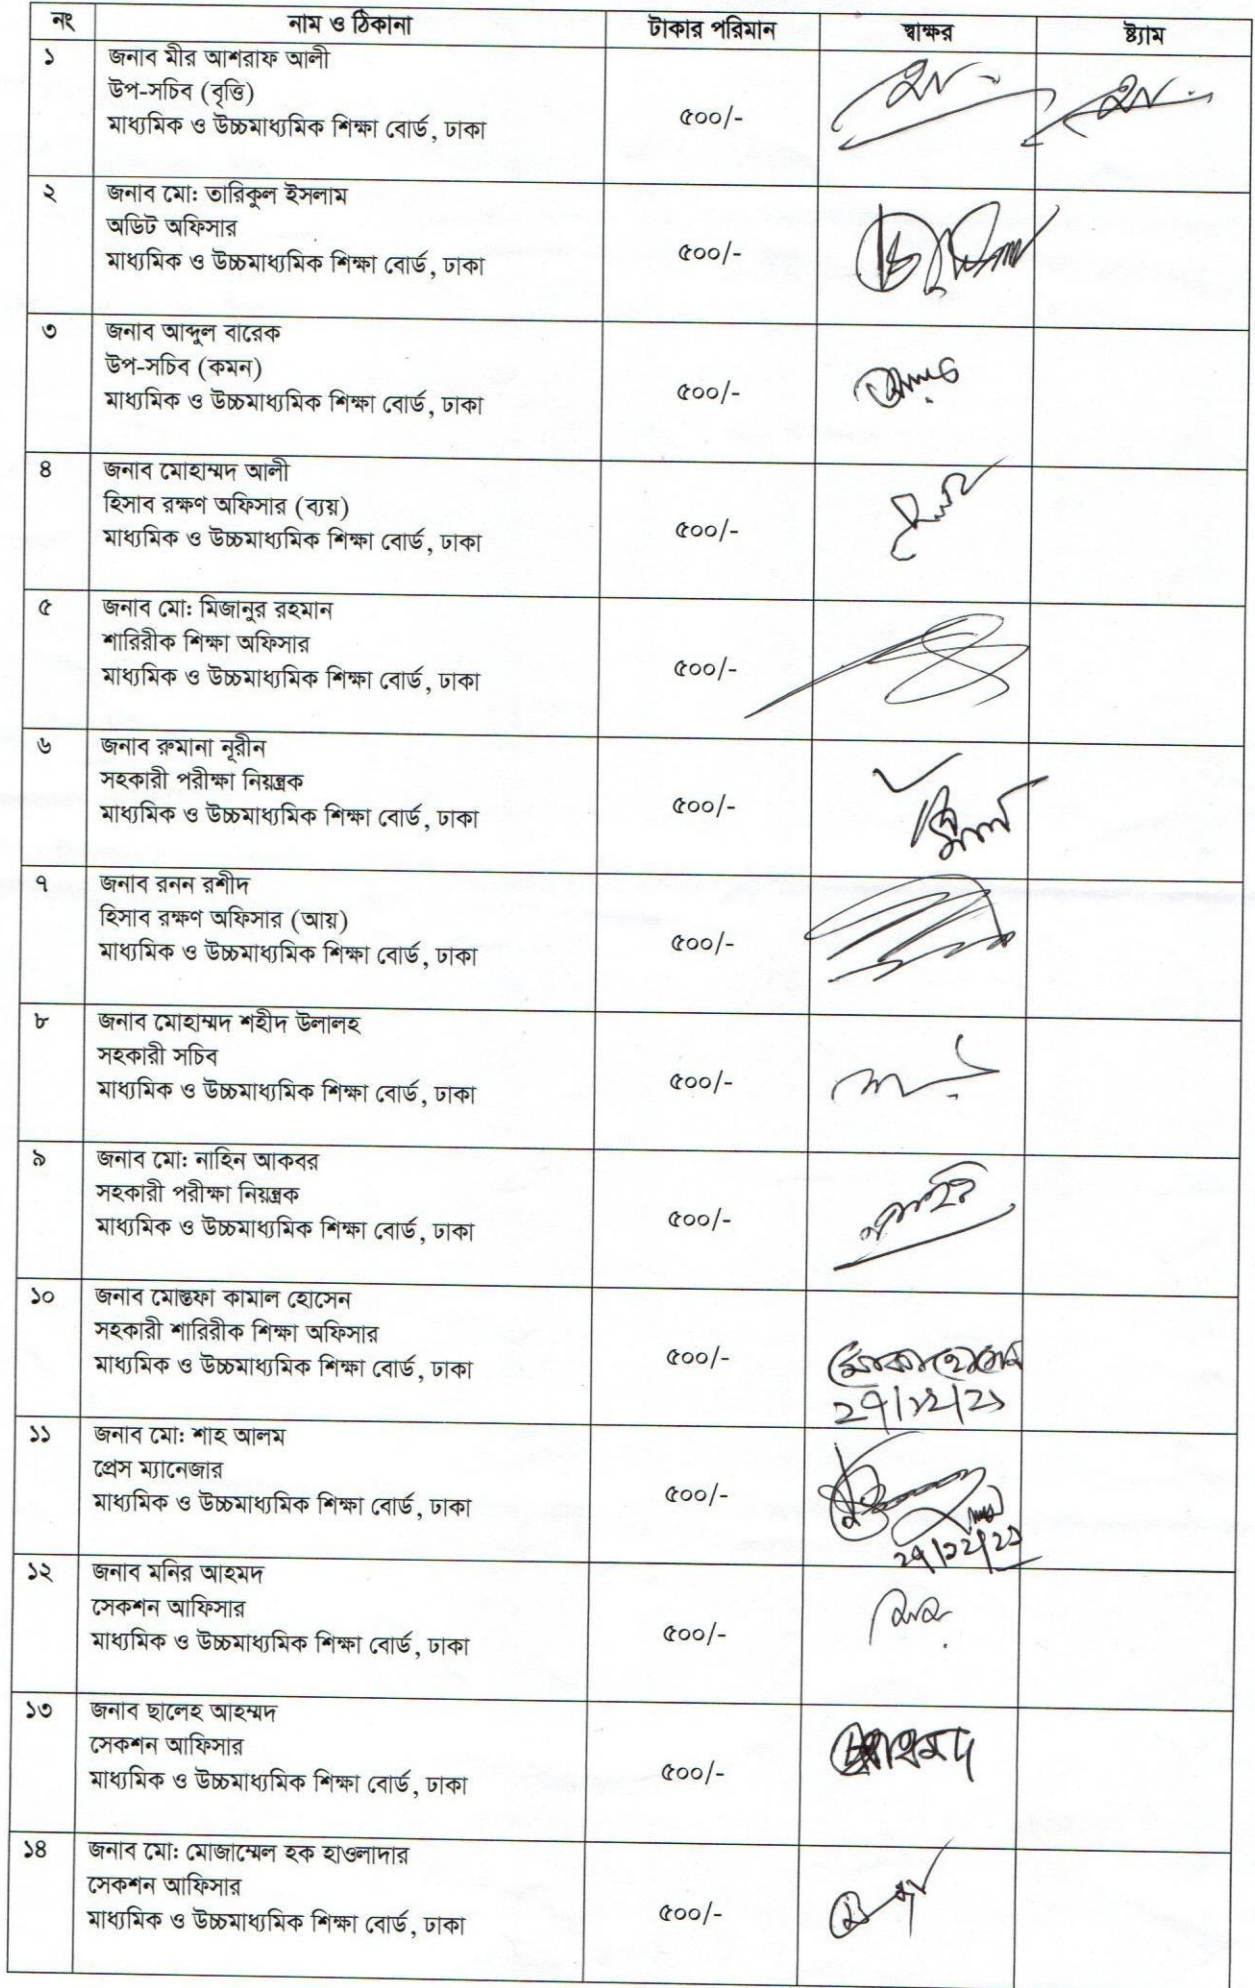 নং নাম ও ঠিকানা টাকার পরিমান স্বাক্ষর ষ্ট্যাম
১ জনাব মীর আশরাফ আলী
উপ-সচিব (বৃত্তি)
মাধ্যমিক ও উচ্চমাধ্যমিক শিক্ষা বোর্ড, ঢাকা ৫০০/-
২ জনাব মো: তারিকুল ইসলাম
অডিট অফিসার
মাধ্যমিক ও উচ্চমাধ্যমিক শিক্ষা বোর্ড, ঢাকা ৫০০/-
৩ জনাব আব্দুল বারেক
উপ-সচিব (কমন)
মাধ্যমিক ও উচ্চমাধ্যমিক শিক্ষা বোর্ড, ঢাকা ৫০০/-
৪ জনাব মোহাম্মদ আলী
হিসাব রক্ষণ অফিসার (ব্যয়)
মাধ্যমিক ও উচ্চমাধ্যমিক শিক্ষা বোর্ড, ঢাকা ৫০০/-
৫ জনাব মো: মিজানুর রহমান
শারিরীক শিক্ষা অফিসার
মাধ্যমিক ও উচ্চমাধ্যমিক শিক্ষা বোর্ড, ঢাকা ৫০০/-
৬ জনাব রুমানা নূরীন
সহকারী পরীক্ষা নিয়ন্ত্রক
মাধ্যমিক ও উচ্চমাধ্যমিক শিক্ষা বোর্ড, ঢাকা ৫০০/-
৭ জনাব রনন রশীদ
হিসাব রক্ষণ অফিসার (আয়)
মাধ্যমিক ও উচ্চমাধ্যমিক শিক্ষা বোর্ড, ঢাকা ৫০০/-
৮ জনাব মোহাম্মদ শহীদ উলালহ
সহকারী সচিব
মাধ্যমিক ও উচ্চমাধ্যমিক শিক্ষা বোর্ড, ঢাকা ৫০০/-
৯ জনাব মো: নাহিন আকবর
সহকারী পরীক্ষা নিয়ন্ত্রক
মাধ্যমিক ও উচ্চমাধ্যমিক শিক্ষা বোর্ড, ঢাকা ৫০০/-
১০ জনাব মোস্তফা কামাল হোসেন
সহকারী শারিরীক শিক্ষা অফিসার
মাধ্যমিক ও উচ্চমাধ্যমিক শিক্ষা বোর্ড, ঢাকা ৫০০/-
২৭/১২/২১
১১ জনাব মো: শাহ আলম
প্রেস ম্যানেজার
মাধ্যমিক ও উচ্চমাধ্যমিক শিক্ষা বোর্ড, ঢাকা ৫০০/-
২৭/১২/২১
১২ জনাব মনির আহমদ
সেকশন আফিসার
মাধ্যমিক ও উচ্চমাধ্যমিক শিক্ষা বোর্ড, ঢাকা ৫০০/-
১৩ জনাব ছালেহ আহম্মদ
সেকশন আফিসার
মাধ্যমিক ও উচ্চমাধ্যমিক শিক্ষা বোর্ড, ঢাকা ৫০০/-
১৪ জনাব মো: মোজাম্মেল হক হাওলাদার
সেকশন আফিসার
মাধ্যমিক ও উচ্চমাধ্যমিক শিক্ষা বোর্ড, ঢাকা ৫০০/-